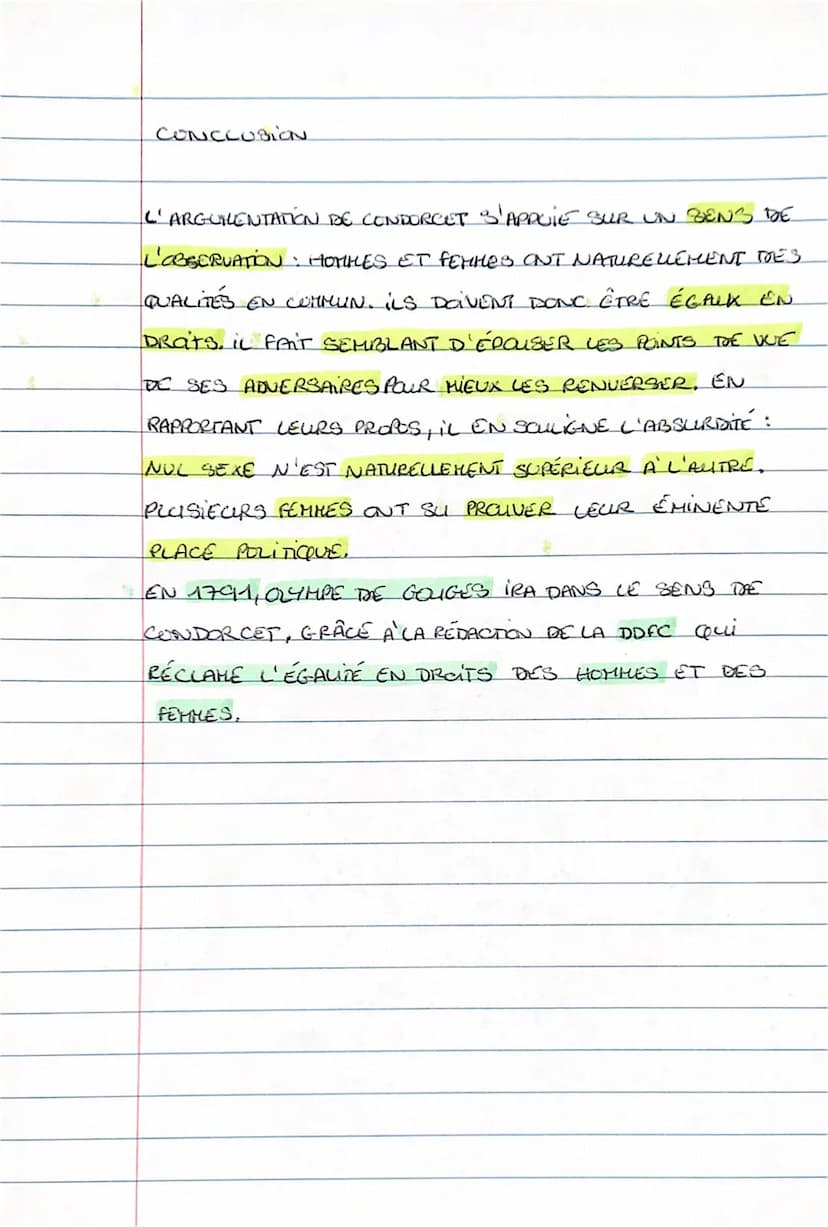 CONCLUSION
L'ARGUMENTATION DE CONDORCET S'APPUIE SUR UN SENS DE
L'OBSERVATION : HOMMES ET FEMMES ONT NATURELLEMENT DES
QUALITÉS EN COMMUN. ILS DOIVENT DONC ÊTRE ÉGAUX EN
DROITS. IL FAIT SEMBLANT D'ÉPOUSER LES POINTS DE VUE
DE SES ADVERSAIRES POUR MIEUX LES RENVERSER. EN
RAPPORTANT LEURS PROPOS, IL EN SOULIGNE L'ABSURDITÉ :
NUL SEXE N'EST NATURELLEMENT SUPÉRIEUR À L'AUTRE.
PLUSIEURS FEMMES ONT SU PROUVER LEUR ÉMINENTE
PLACE POLITIQUE.
EN 1791, OLYMPE DE GOUGES IRA DANS LE SENS DE
CONDORCET, GRÂCE À LA RÉDACTION DE LA DDFC QUI
RÉCLAME L'ÉGALITÉ EN DROITS DES HOMMES ET DES
FEMMES.